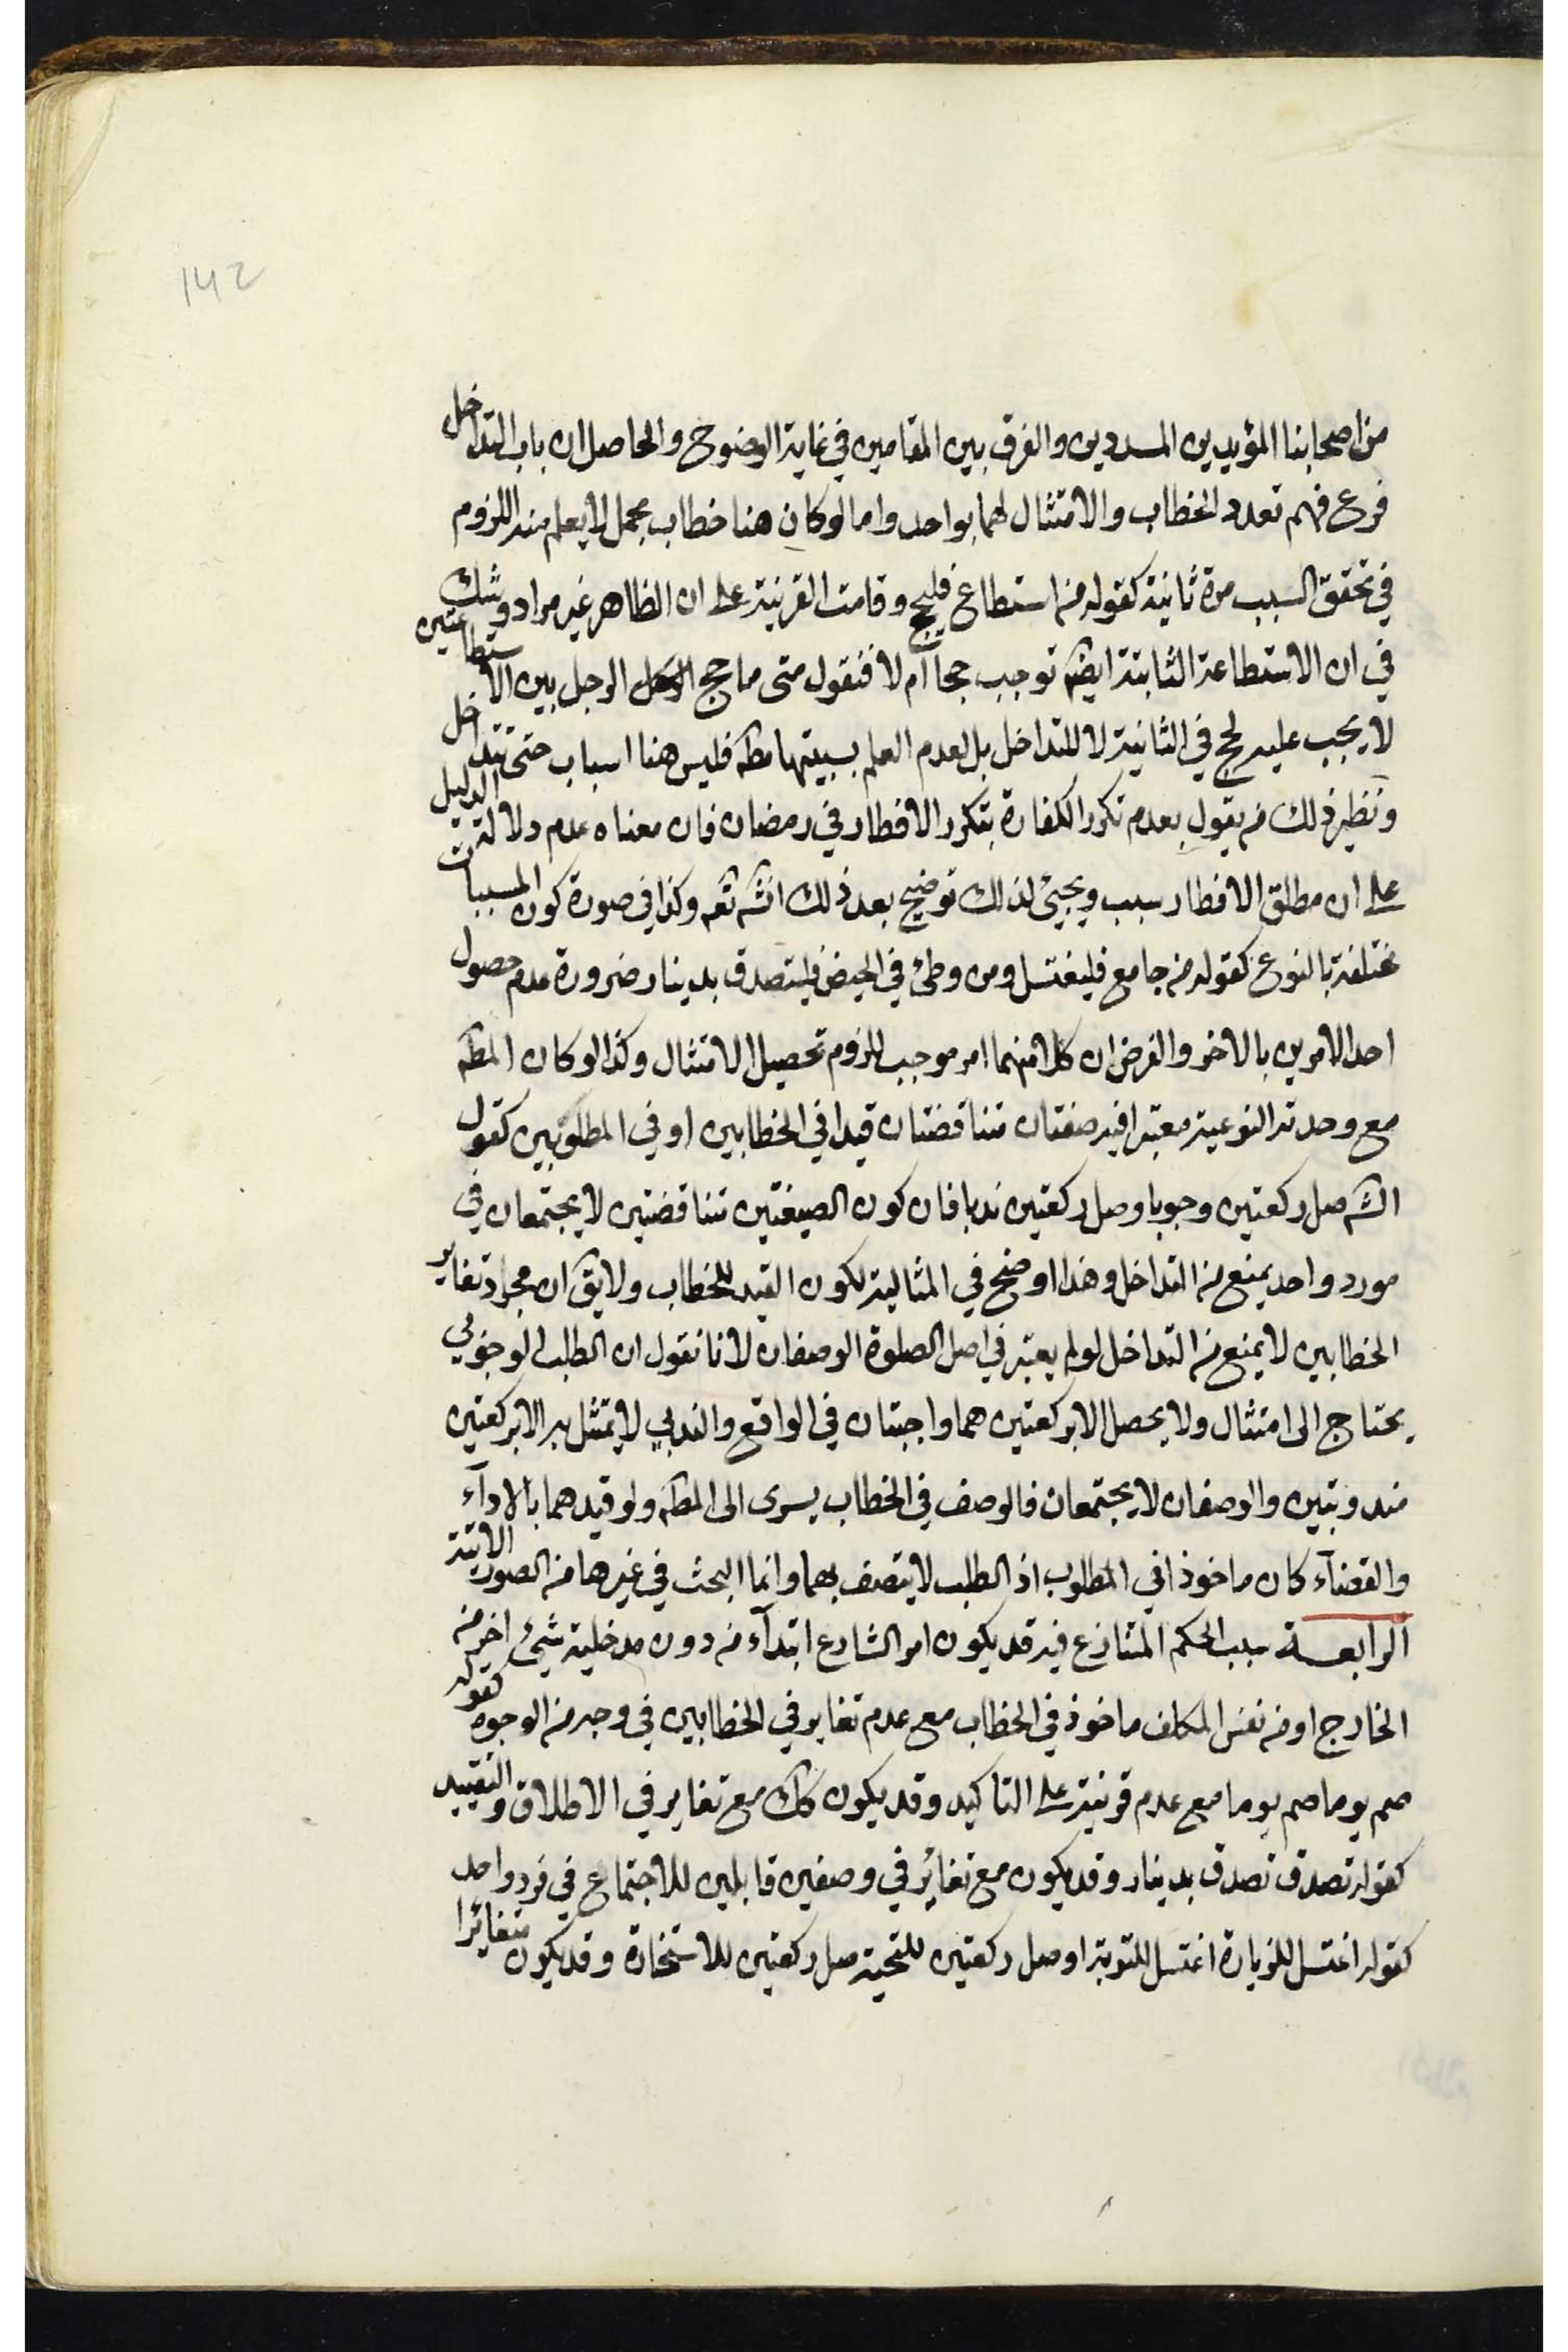 142
من اصحابنا المؤيدين المسددين والفرق بين المقامين في غاية الوضوح والحاصل ان باب التداخل
فرع فهم تعدد الخطاب والامتثال لهما بواحد واما لو كان هنا خطاب مجمل لا يعلم منه اللزوم
في تحقق السبب مرة ثانية كقوله من استطاع فليحج وقامت القرينة على ان الظاهر غير مراد وشك
في ان الاستطاعة الثابتة ايضه توجب حجا آم لا فنقول متى ما حج الرجل بين الاستطاعتين
لا يجب عليه لحج في الثانية لا للتداخل بل لعدم العلم بسببيتها مطه فليس هنا اسباب حتى تتداخل
ونظير ذلك من يقول بعدم تكرر الكفارة بتكرر الافطار في رمضان فان معناه عدم دلالة الدليل
على ان مطلق الافطار سبب ويجيئ لذلك توضيح بعد ذلك انشه تعه وكذا في صورة كون المسببات
مختلفة بالنوع كقوله من جامع فليغتسل ومن وطئ في الحيض فليتصدق بدينار ضرورة عدم حصول
احد الامرين بالاخر والفرض ان كلا منهما امر موجب للزوم تحصيل الامتثال وكذا لو كان المطه
مع وحدته النوعية معتبرا فيه صفتان متناقضتان قيدا في الخطابين او في المطلوبين كقول
الشه صل ركعتين وجوبا وصل ركعتين ندبا فان كون الصيغتين متناقضتين لا يجتمعان في
مورد واحد يمنع من التداخل وهذا اوضح في المثالية لكون القيد للخطاب ولا يق ان مجرد تغاير
الخطابين لا يمنع من التداخل لو لم يعتبر في اصل الصلوة الوصفان لانا نقول ان الطلب الوجوبي
يحتاج الى امتثال ولا يحصل الا بركعتين هما واجبتان في الواقع والندبي لا يمتثل به الا بركعتين
مندوبتين والوصفان لا يجتمعان فالوصف في الخطاب يسرى الى المطه ولو قيدهما بالادآء
والقضآء كان ماخوذا في المطلوب اذ الطلب لا يتصف بهما وانما البحث في غيرها من الصور الاتية
الرابعة سبب الحكم المتنازع فيه قد يكون امر الشارع ابتدآء من دون مدخلية شيئ اخر من
الخارج او من نفس المكلف ماخوذ في الخطاب مع عدم تغاير في الخطابين في وجه من الوجوه كقوله
صم يوما صم يوما مع عدم قرينة على التاكيد وقد يكون كك مع تغاير في الاطلاق والتقييد
كقوله تصدق تصدق بدينار وقد يكون مع تغائر في وصفين قابلين للاجتماع في فرد واحد
كقوله اغتسل للزيارة اغتسل للتوبة او صل ركعتين للتحية صل ركعتين للاستخارة وقد يكون متغائرا